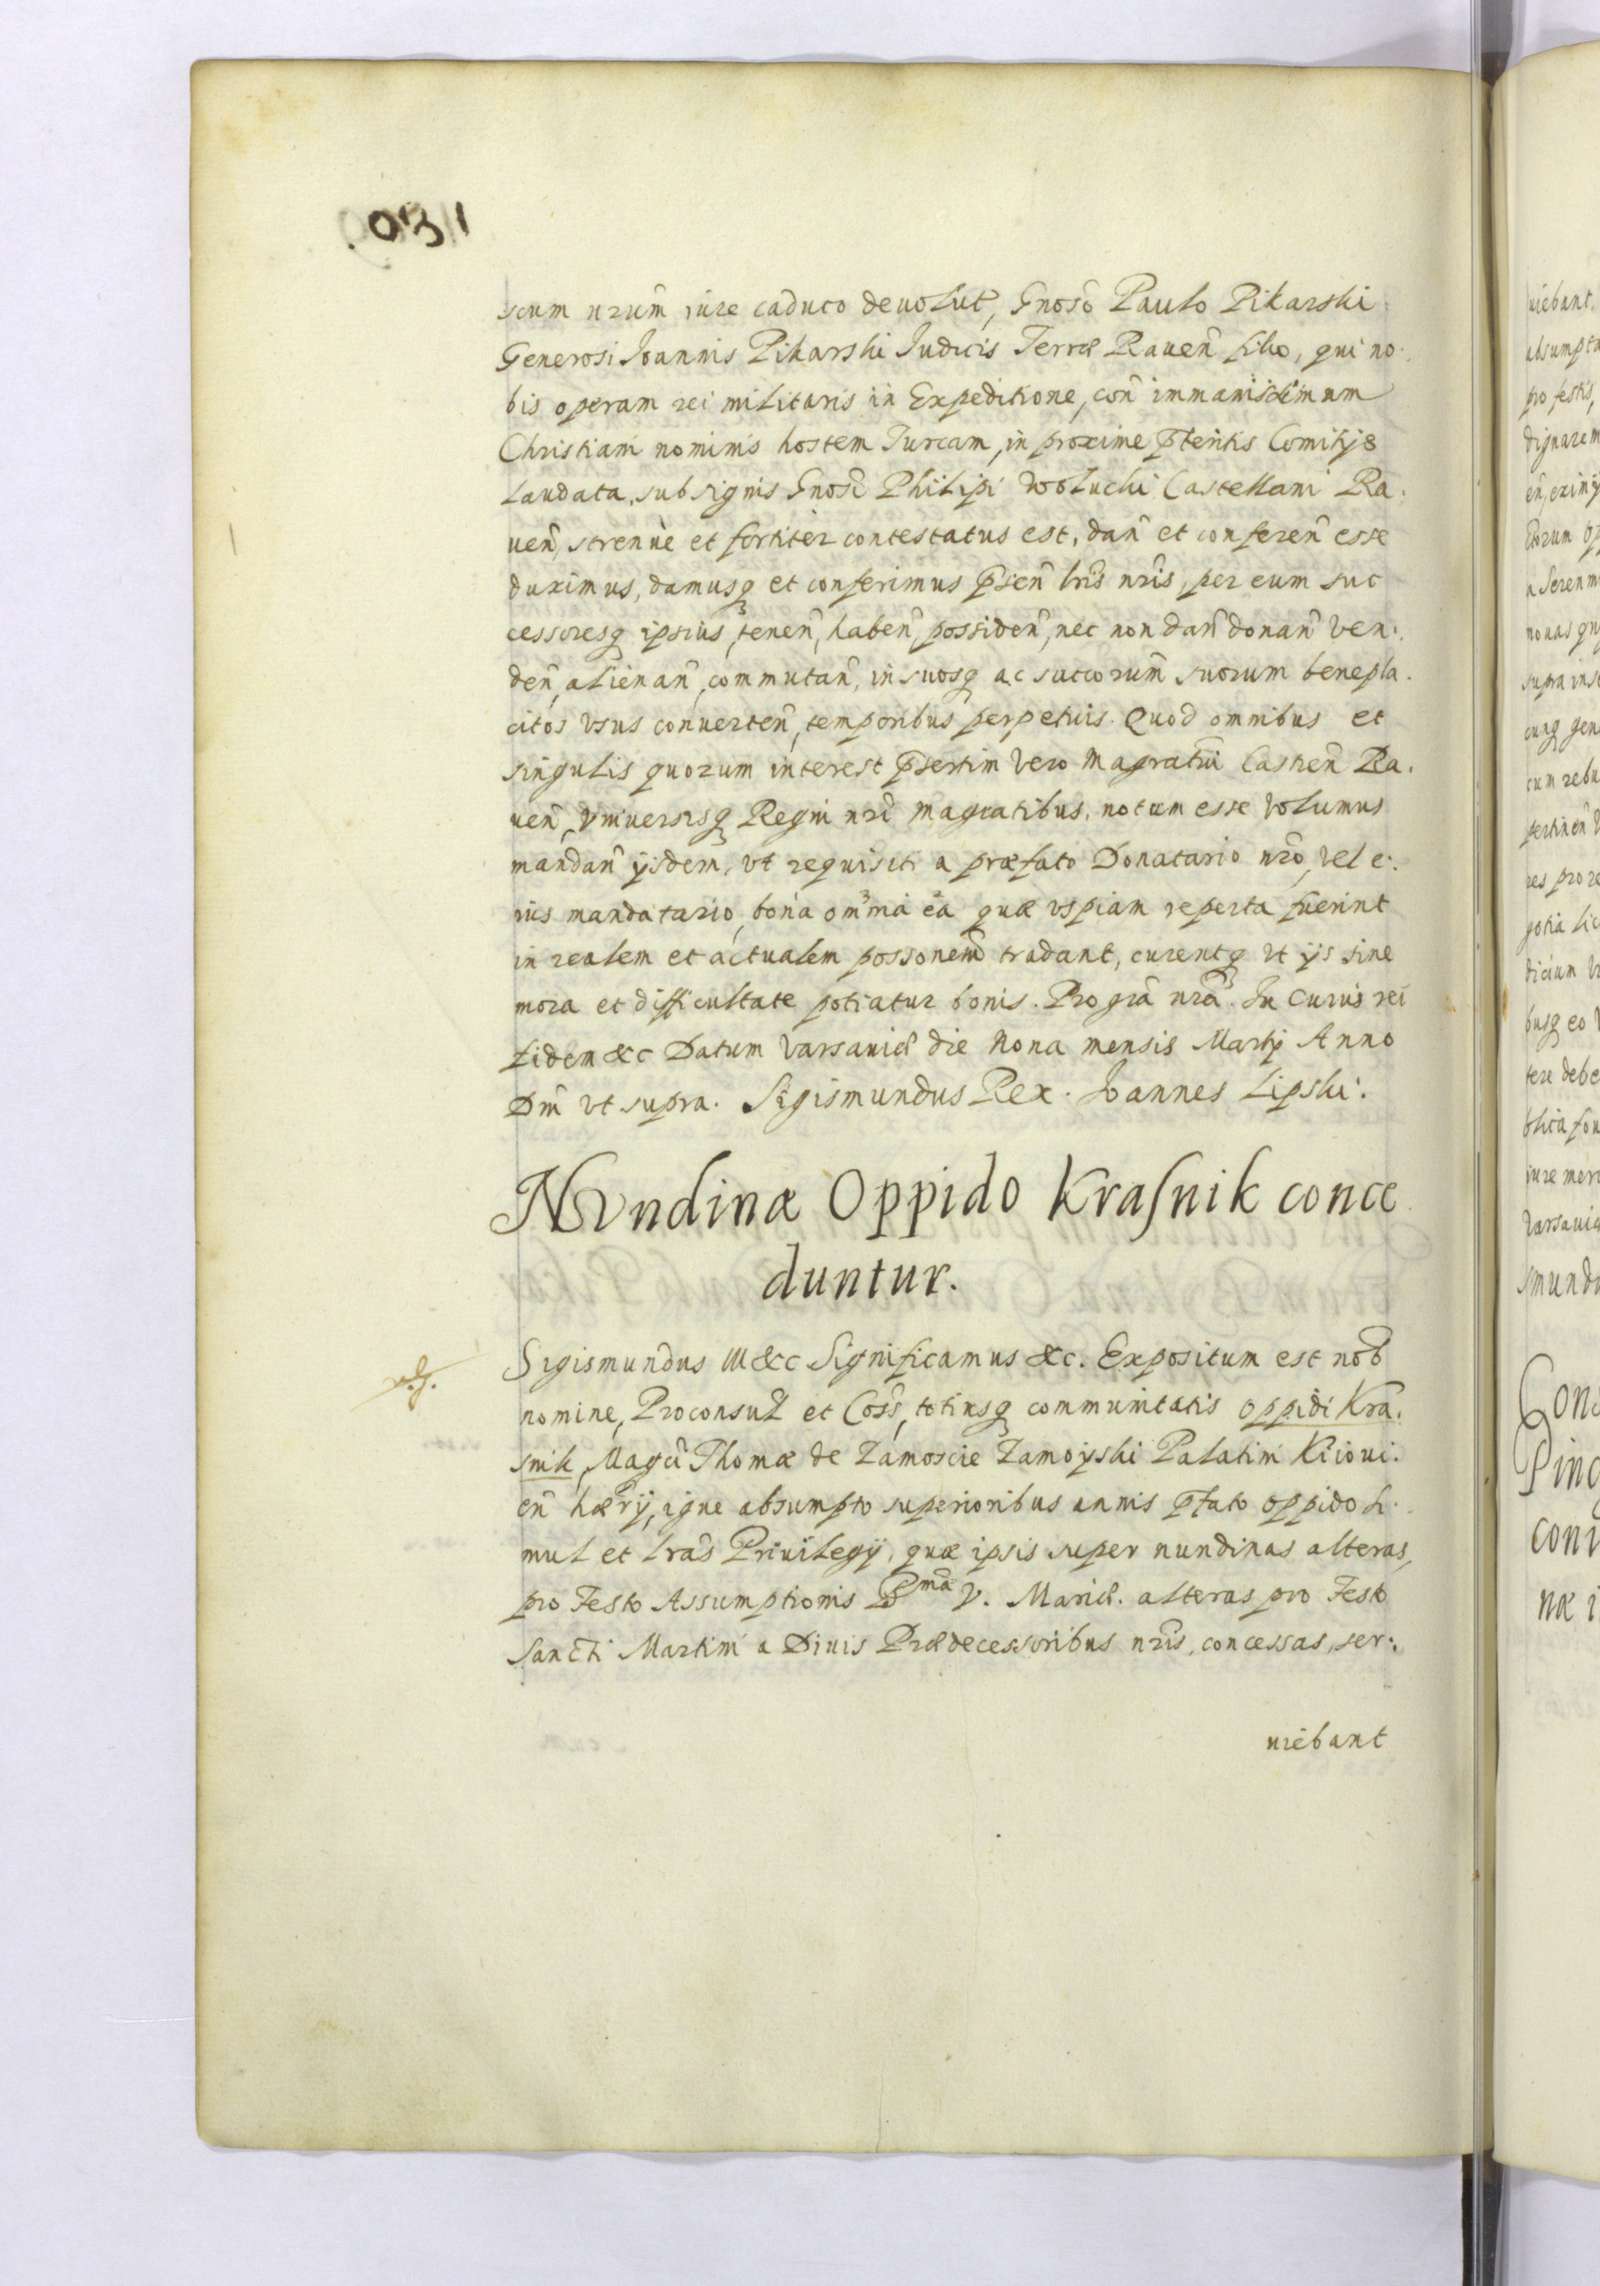 scum nrũm iure caduco deuolut, Gnosõ Paulo Pikarski
Generosi Ioannis Pikarski Iudicis Terræ Rauen̄ filio, qui no.
bis operam rei militaris in Expeditione, con̄ immanissimum
Christiani nominis hostem Turcam, in proxime p̄teritis Comitijs
laudata, sub signis Gnosi Philipi Woluchi Castellani Ra.
uen̄, strenuè et fortiter contestatus est, dan̄ et conferen̄ esse
duximus, damusq et conferimus p̄sen̄ lr̄is nr̄is, per eum suc
cessoresq ipsius, tenen̄, haben̄, possiden̄, nec non dan̄ donan̄ ven.
den̄, alienan̄, commutan̄, in suosq ac succorum̄ suorum benepla.
citos vsus conuerten̄, temporibus perpetuis. Quod omnibus et
singulis quorum interest p̄sertim vero Magratui Castren̄ Ra.
uen̄, Vniuersisq Regni nr̄i Magratibus, notum esse volumus
mandan̄ ijsdem, vt requisiti a præfato Donatario nr̄o, vel e.
ius mandatario, bona om̄nia ea quæ vspiam reperta fuerint
in realem et actualem possonem̄ tradant, curentq vt ijs sine
mora et difficultate potiatur bonis. Pro grā nr̄a. In cuius rei
fidem &c Datum Varsauiæ die Nona mensis Martij Anno
Dn̄i vt supra. Sigismundus Rex. Ioannes Lipski.
Nvndinæ Oppido Krasnik conce
duntur.
Sigismundus III &c Significamus &c. Expositum est nob̄
nomine, Proconsul et Cōss, totiusq communitatis oppidi Kra.
snik, Magci Thomæ de Zamoscie Zamoyski Palatini Kiioui.
en̄ hærij, igne absumpto superioribus annis p̄fato oppido si.
mul et lrās Priuilegij, quæ ipsis super nundinas alteras,
pro Festo Assumptionis Bmā V. Mariæ. alteras pro Festo
Sancti Martini a Diuis Prædecessoribus nr̄is, concessas, ser.
uiebant